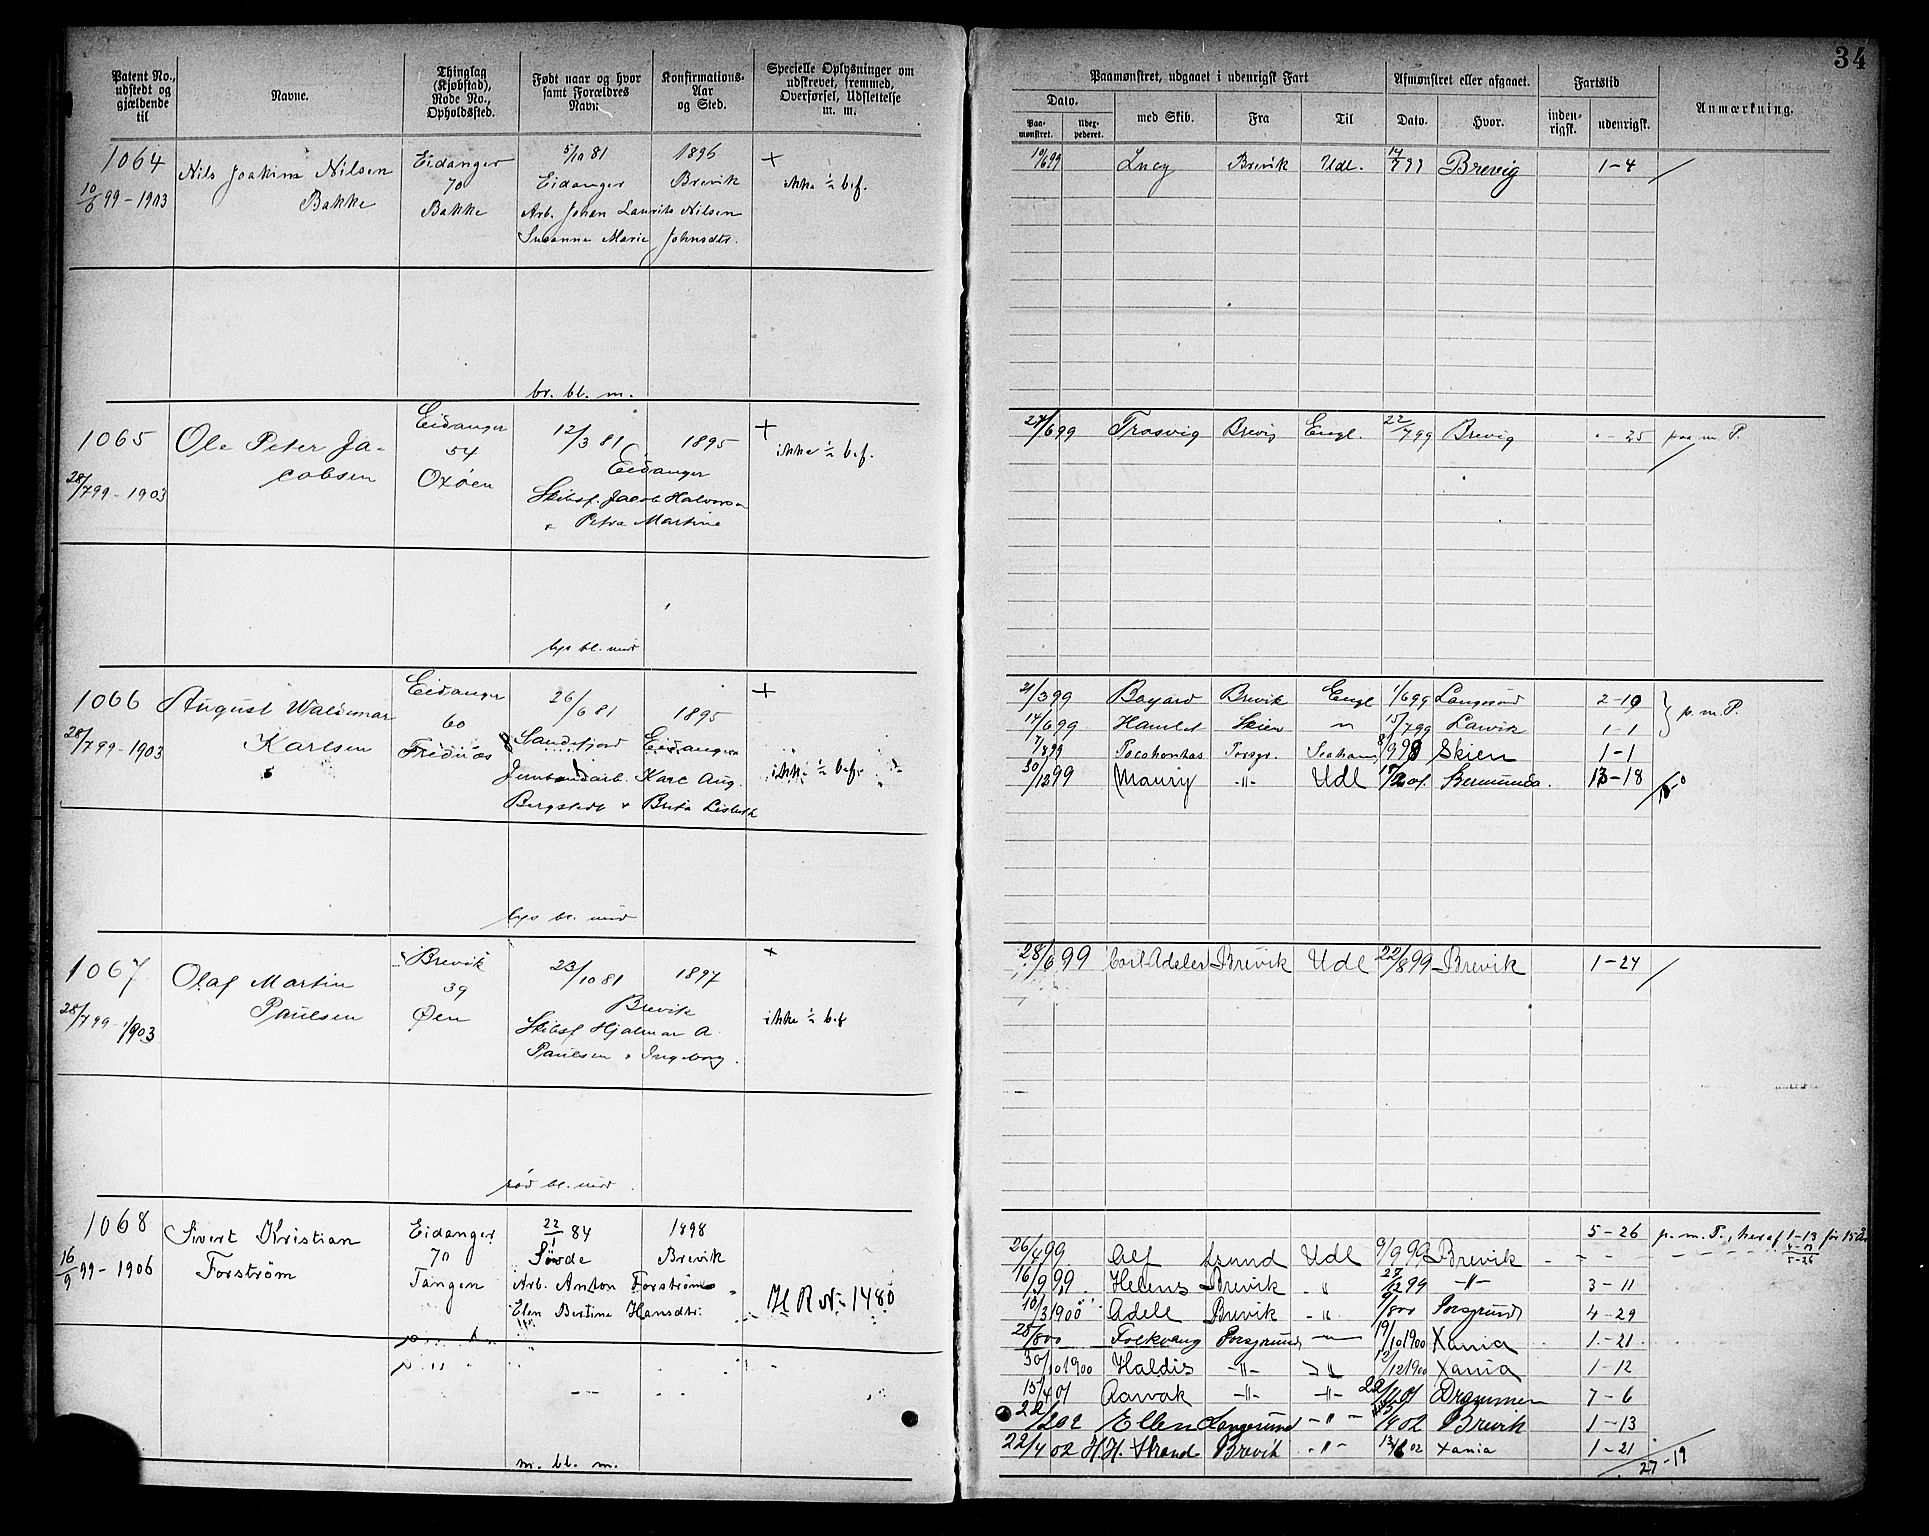 34
Patent No., udstedt og gjældende til
Navne.
Thinglag (Kjøbstad), Rode No., Opholdssted.
Født naar og hvor samt Forældres Navn
Konfirmations-Aar og Sted.
Specielle Oplysninger om udskrevet, fremmed, Overførsel, Udslettelse m. m.
Paamønstret, udgaaet i udenrigsk Fart
Afmønstret eller afgaaet.
Fartstid
Anmærkning.
Dato.
Paa-mønstret.
Udex-pederet.
med Skib.
Fra
Til
Dato.
Hvor.
inden-rigsk.
udenrigsk.
1064 Nils Joakim Nilsen Eidanger 5/10 81 1896 +
10/6 99 - 1903 Bakke 70 Eidanger Brevik ikke ½ bef.
Bakke Arb. Johan Laurits Nilsen
Susanne Marie Johnsdtr.
br. bl. m.
10/6 99 Lucy Brevik Udl. 14/7 99 Brevig 1-4
1065 Ole Peter Ja- Eidanger 12/3 81 1895 +
28/7 99 - 1903 cobsen 54 Eidanger ikke ½ bef.
Oxøen Skibsf. Jacob Halvorsen
+ Petra Martine
lys bl. mid
27/6 99 Trosvig Brevig Engl. 22/7 99 Brevig - 25 paa m. P.
1066 August Waldemar Eidanger 26/6 81 1895 +
28/7 99 - 1903 Karlsen 60 Sandefjord Eidanger
Fridnæs Jernbanearb. Karl Aug. ikke ½ bef.
Bergstedt + Berta Lisbeth
lys bl. mid
21/3 99 Bayard Brevik Engl 1/6 99 Langesund 2-10 p. m. P.
17/6 99 Hamlet Skien " 15/7 99 Larvik 1-1
7/8 99 Pocahontas Porsgr. Seaham 8/9 98 Skien 1-1
30/12 99 Maury -"- Udl Bermunda. 13-18
1067 Olaf Martin Brevik 23/10 81 1897 +
28/7 99 - 1903 Paulsen 39 Brevik ikke ½ bef
Øen Skibsf Hjalmar A.
Paulsen + Ingeborg.
rød bl. mid
28/6 99 Carl Adeler Brevik Udl 22/8 99 Brevik 1-24
1068 Sivert Kristian Eidanger 22/1 84 1898
16/9 99 - 1906 Forstrøm 70 Førde Brevik
Tangen Arb. Anton Forstrøm
Elen Bertine Hansdtr. H R No 1480
m. bl. m.
5-26 p. m. P., heraf 1-13 før 15 År
4-13
5-26
26/4 99 Alf Lsund Udl 9/9 99 Brevik
16/9 99. Helens Brevik " 27/12 99 -"- 3-11
10/3 1900 Adele Brevik " 9/8 00 Porsgrund 4-29
28/8 00 Folkvang Porsgrund 19/10 1900 Xania 1-21
30/10 1900 Haldis -"- -"- 12/12 1900 Xania 1-12
15/4 01 Aarvak -"- -"- 22/11 01 Drammen 7-6
22/2 02 Ellen Langesund -"- 5/4 02 Brevik 1-13
22/4 02 H. H. Strand Brevik -"- 13/6 02 Xania 1-21
27-19